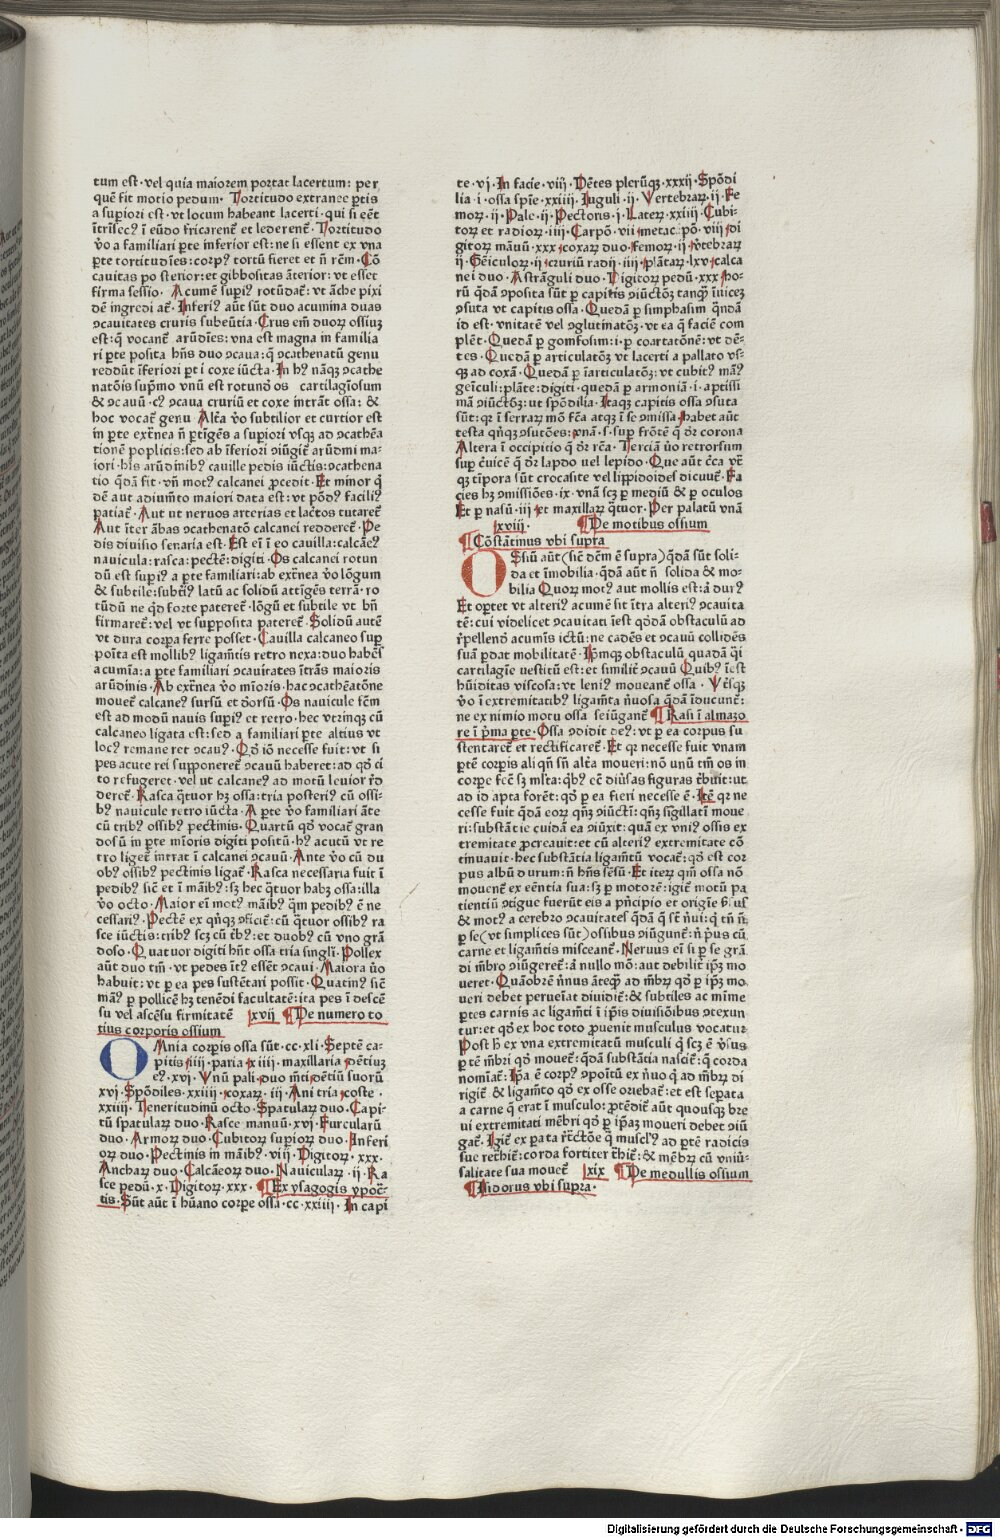 tum est·vel quia maiorem portat lacertum: per
quē fit motio pedum· Tortitudo extranee ꝑtis
a supiori est·vt locum habeant lacerti·qui si eēt
ītrīsecꝰ ī eūdo fricarenť et lederenť·Tortitudo
v̄o a familiari ꝑte inferior est:ne si essent ex vna
ꝑte tortitudīes:corpꝰ tortū fieret et n̄ rēm·Cō
cauitas po sterior:et gibbositas āterior:vt esset
firma sessio· Acumē supiꝰ rotūdať:vt āche pixi
dē ingredi ať· Inferiꝰ aūt sūt duo acumina duas
ꝯcauitates cruris subeūtia·Crus em̄ duoꝝ ossiuꝫ
est:q̄ vocanť arūdīes:vna est magna in familia
ri ꝑte posita hn̄s duo ꝯcaua:q̄ ꝯcathenatū genu
reddūt īferiori ꝑt i coxe iūcta·In hꝰ nāqꝫ ꝯcathe
natōis sup̄mo vnū est rotundꝰ os cartilagīosum
& ꝯcauū·cꝰ ꝯcaua cruriū et coxe intrāt ossa: &
hoc vocať genu·Alťa v̄o subtilior et curtior est
in ꝑte exťnea n̄ ꝑtīgēs a supiori vsqꝫ ad ꝯcathēa
tionē poplicis:sed ab īferiori ꝯiūgiť arūdmi ma-
iori·his arūdinibꝰ cauille pedis iūctis:ꝯcathena
tio q̄dā fit·vn̄ motꝰ calcanei ꝓcedit·Et minor q̄
dē aut adiumto maiori data est:vt pōdꝰ faciliꝰ
patiať· Aut ut neruos arterias et lactos tutareť
Aut īter ābas ꝯcathenatō calcanei reddereť·Pe
dis diuisio senaria est·Est ei ī eo cauilla:calcāeꝰ
nauicula:rasca:pectē:digiti·Os calcanei rotun
dū est supiꝰ a ꝑte familiari:ab exťnea v̄o lōgum
& subtile:subťiꝰ latū ac solidū attīgēs terrā·ro
tūdū ne q̄d forte patereť·lōgū et subtile vt bn̄
firmareť:vel vt supposita patereť·Solidū autē
vt dura corpa ferre posset·Cauilla calcaneo sup
poīta est mollibꝰ ligamtis retro nexa:duo habēs
acumīa:a ꝑte familiari ꝯcauitates ītrās maioris
arūdinis·Ab exťnea v̄o mīoris·hac ꝯcathēatōne
moueť calcaneꝰ sursū et dorsū·Os nauicule fcm̄
est ad modū nauis supiꝰ et retro·hec vtrinqꝫ cū
calcaneo ligata est:sed a familiari ꝑte altius vt
locꝰ remane ret ꝯcauꝰ·Qď iō necesse fuit:vt si
pes acute rei supponereť ꝯcauū haberet:ad qď ci
to refugeret·vel ut calcaneꝰ ad motū leuior rd̄
dereť·Rasca q̄tuor hꝫ ossa:tria posteriꝰ cū ossi-
bꝰ nauicule retro iūcta·A ꝑte v̄o familiari āte
cū tribꝰ ossibꝰ pectinis·Quartū qď vocať gran
dosū in ꝑte mīoris digiti positū·hꝫ acutū vt re
tro ligeť intrat ī calcanei ꝯcauū·Ante v̄o cū du
obꝰ ossibꝰ pectinis ligať·Rasca necessaria fuit ī
pedibꝰ sic̄ et ī māibꝰ:sꝫ hec q̄tuor habꝫ ossa:illa
v̄o octo·Maior ei motꝰ māibꝰ qm̄ pedibꝰ ē ne
cessariꝰ·Pectē ex qn̄qꝫ ꝯficiť:cū q̄tuor ossibꝰ ra
sce iūctis:tribꝰ scꝫ cū tbꝰ:et duobꝰ cū vno grā
doso·Quatuor digiti hn̄t ossa tria singłi·Pollex
aūt duo tm̄·vt pedes ītꝰ essēt ꝯcaui·Maiora v̄o
habuit:vt ꝑ ea pes sustētari possit·Quatinꝰ sic̄
māꝰ ꝑ pollicē hꝫ tenēdi facultatē:ita pes ī descē
su vel ascēsu firmitatē xvij ¶De numero to
tius corporis ossium
OMnia corpis ossa sūt·cc·xli·Septē ca-
pitis·iiij·paria·xiiij·maxillaria·dētiuꝫ
eꝰ·xvi·Vnū pali·duo mti dētiū suorū
xvj·Spōdiles·xxiiij·coxaꝝ·iij·Ani tria·coste
xxiiij·Teneritudinū octo·Spatulaꝝ duo·Capi-
tū spatulaꝝ duo·Rasce manuū·xvj·Furcularū
duo·Armoꝝ duo·Cubitoꝝ supioꝝ duo·Inferi
oꝝ duo·Pectinis in māibꝰ·viij·Digitoꝝ·xxx·
Anchaꝝ duo·Calcāeoꝝ duo·Nauiculaꝝ·ij·Ra
sce pedū·x·Digitoꝝ·xxx· ¶Ex ysagogis ypoc̄-
tis·Sūt aūt ī hūano corpe ossa·cc·xxiiij·In capi
te·vj·In facie·viij·Dētes plerūqꝫ·xxxij·Spōdi
lia·i·ossa spīe·xxiiij·Iuguli·ij·Vertebraꝝ·ij·Fe
moꝝ·ij·Pale·ij·Pectoris·j·Lateꝝ·xxiiij·Cubi-
toꝝ et radioꝝ·iiij·Carpō·vij·metac pō·viij·di
gitoꝝ māuū·xxx·coxaꝝ duo·femoꝝ·ij·v̄tebraꝝ
ij·Gēiculoꝝ·ij·cruriū radij·iiij·plātaꝝ·lxv·calca
nei duo·Astrāguli duo·Digitoꝝ pedū·xxx·ho-
rū q̄dā ꝯposita sūt ꝑ capitis ꝯiūctōꝫ tanqꝫ īuiceꝫ
ꝯsuta vt capitis ossa·Quedā ꝑ simphasim q̄ndā
id est·vnitatē vel ꝯglutinatōꝫ·vt ea q̄ faciē com
plēt·Quedā ꝑ gomfosim:i·ꝑ coartatōnē:vt dē-
tes·Quedā ꝑ articulatōꝫ vt lacerti a pallato vs-
qꝫ ad coxā·Quedā ꝑ īarticulatōꝫ:ut cubitꝰ māꝰ
geīculi:plāte:digiti·quedā ꝑ armoniā·i·aptissi
mā ꝯiūctōꝫ:ut spōdilia·Itaqꝫ capitis ossa ꝯsuta
sūt:qꝛ ī serraꝝ mo fca atqꝫ ī se ꝯmissa·habet aūt
testa qn̄qꝫ ꝯsutōes:vnā·s·sup frōtē q̄ dr̄ corona
Altera ī occipitio q̄ dr̄ rc̄a·Terciā v̄o retrorsum
sup ceruicē q̄ dr̄ lapdo uel lepido·Que aūt cca vť
qꝫ tīpora sūt crocasite vel lippidoides dicuuť·Fa
cies hꝫ ꝯmissiōes·ix·vnā scꝫ ꝑ mediū & ꝑ oculos
Et ꝑ nasū·iij·et maxillaꝝ q̄tuor·Per palatū vnā
xviij· ¶De motibus ossium
¶Cōstātinus vbi supra
OSsiū aūt(sic̄ dēm ē supra)q̄dā sūt soli-
da et īmobilia·q̄dā aūt n̄ solida & mo-
bilia Quoꝝ motꝰ aut mollis est:ā durꝰ
Et oꝑtet vt alteriꝰ acumē sit ītra alteriꝰ ꝯcauita
tē:cui videlicet ꝯcauitati īest qd̄dā obstaculū ad
r̄pellendū acumīs ictū:ne cadēs et ꝯcauū collidēs
suā ꝑdat mobilitatē·Ipm̄qꝫ obstaculū quadā q̄i
cartilagīe vestitū est:et similit̄ ꝯcauū Quibꝰ īest
hūiditas viscosa:vt leniꝰ moueanť ossa· Vťsqꝫ
v̄o ī extremitatibꝰ ligamta n̄uosa q̄dā īducunť:
ne ex nimio motu ossa seiūganť ¶Rasi ī almazo
re ī p̄ma ꝑte·Ossa ꝯdidit deꝰ:vt ꝑ ea corpus su
stentareť et rectificareť·Et qꝛ necesse fuit vnam
ꝑtē corpis ali qn̄ sn̄ alta moueri:nō unū tm̄ os in
corpe fecť sꝫ młta:qbꝰ eť diūsas figuras tbuit:ut
ad id apta forēt:qď ꝑ ea fieri necesse ē·Itē qꝛ ne
cesse fuit q̄dā eoꝝ qm̄ꝫ ꝯiūcti:qm̄ꝫ sigillati moue
ri:substātie cuidā ea ꝯiūxit:quā ex vniꝰ ossis ex
tremitate ꝓcreauit:et cū alteriꝰ extremitate cō
tinuauit·hec substātia ligamtū vocať:qď est cor
pus albū durum:n̄ hn̄s sēsū·Et iteꝝ qm̄ ossa nō
mouenť ex eēntia sua:sꝫ ꝑ motorē:igiť motū pa
tientiū ꝯtigue fuerūt eis a p̄ncipio et origīe
& motꝰ a cerebro ꝯcauitates q̄dā q̄ sť n̄ui:q̄ tn̄ n̄
ꝑ se(vt simplices sūt)ossibus ꝯiūgunť:n̄ p̄us cū
carne et ligamtis misceanť·Neruus ei si ꝑ se grā
di mbro ꝯiūgereť:ā nullo mō:aut debiliť ipꝫ mo
ueret·Quāobrē n̄nus āteqꝫ ad mbꝝ qď ꝑ ipꝫ mo
ueri debet perueiat diuidiť:& subtiles ac mime
ꝑtes carnis ac ligamti ī ipīs diuisiōibus ꝯtexun
tur:et qď ex hoc toto ꝓuenit musculus vocatur
Post h̄ ex vna extremitatū musculi q̄ scꝫ ē v̄sus
ꝑtē mbri qď moueť:q̄dā substātia nasciť:q̄ corda
nomīať:Ipā ē corpꝰ ꝯpoītū ex n̄uo q̄ ad mbꝝ di
rigiť & ligamto qď ex osse oriebať:et est seꝑata
a carne q̄ erat ī musculo:ꝓtēdiť aūt quousqꝫ bre
ui extremitati mēbri qď ꝑ ipāꝫ moueri debet ꝯiū
gať·Igiť ex parata rctōe q̄ musclꝰ ad ꝑtē radicis
sue rethiť:corda fortiter thiť:& mēbꝝ cū vniū-
salitate sua moueť xix ¶De medullis ossium
¶Isidorus vbi supra·
Digitalisierung gefördert durch die Deutsche Forschungsgemeinschaft - DFG